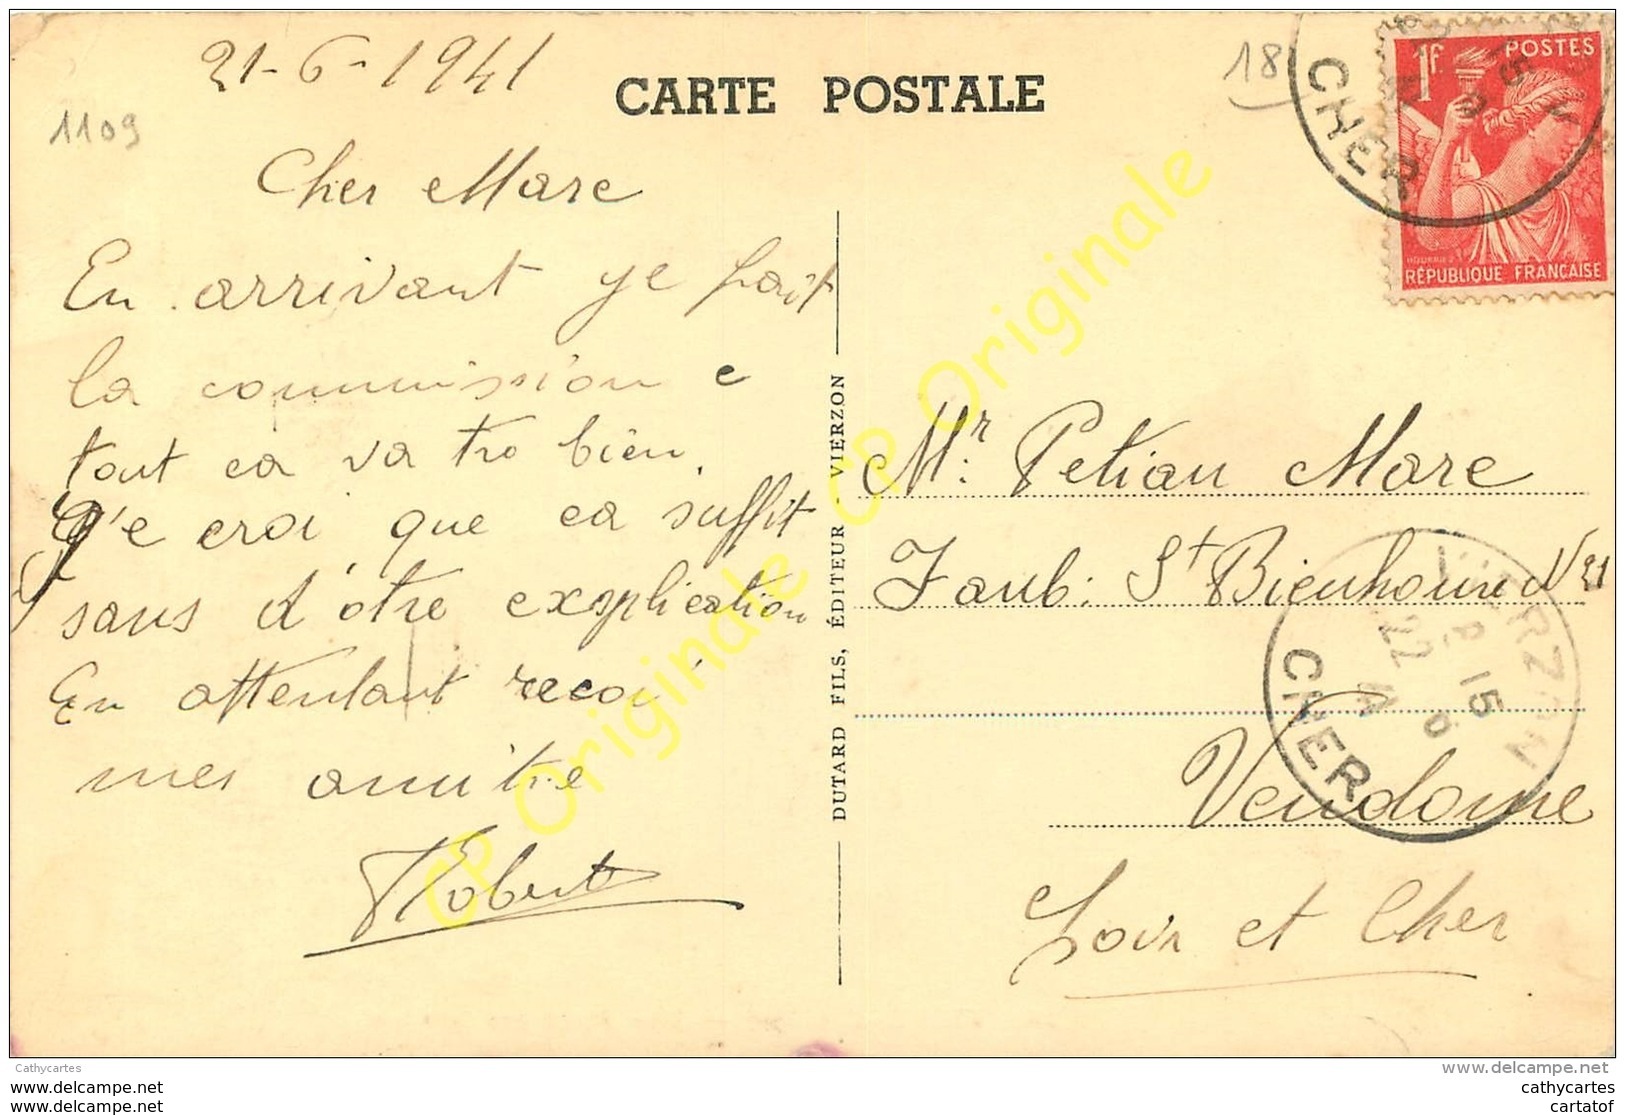 21-6-1941
1109
18
CARTE POSTALE
1F. POSTES
RÉPUBLIQUE FRANÇAISE
CHER
Cher Marc
En arrivant je fait
la commission e
tout ca va tro bien.
J'e croi que ca suffit
sans d'otre exsplication
En attendant recoi
mes amitre
Robert
DUTARD FILS, ÉDITEUR - VIERZON
Mr. Petian Marc
Faub: St Bienheure N 21
Vendome
Loir et Cher
VIERZON
15
22 6
CHER
CP Originale CP Originale CP Originale
Cathycartes
www.delcampe.net
www.delcampe.net
www.delcampe.net
cathycartes
cartatof